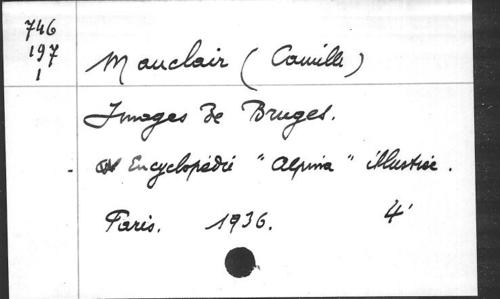 746
197
1
Mauclair (Camille)
Images de Bruges.
Encyclopédie "Alpina" illustrée.
Paris. 1936. 4°